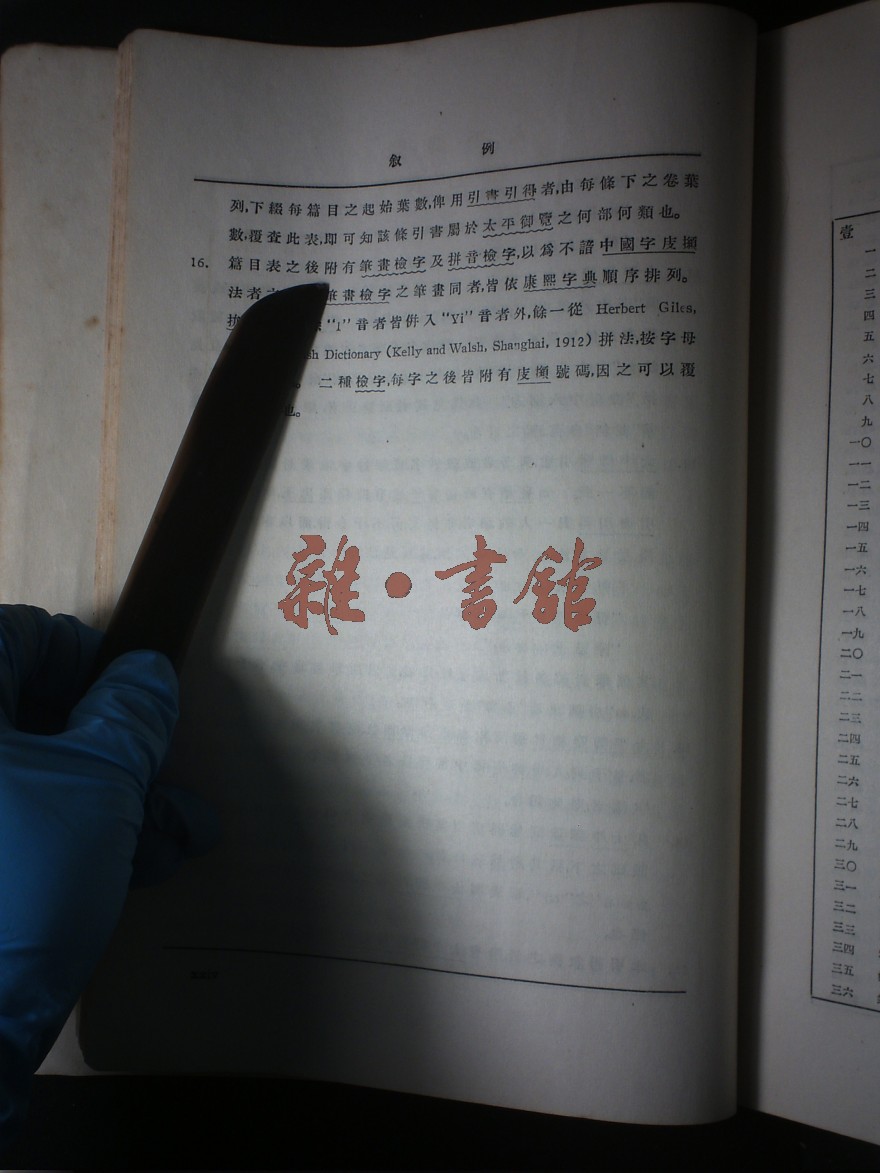 敘例
列,下綴每篇目之起始葉數,俾用引書引得者,由每條下之卷葉
數,覆查此表,即可知該條引書屬於太平御覽之何部何類也。
16. 篇目表之後附有筆畫檢字及拼音檢字,以爲不諳中國字庋擷
法者 筆畫檢字之筆畫同者,皆依康熙字典順序排列。
"I"音者皆併入"Yi"音者外,餘一從 Herbert Giles,
Dictionary (Kelly and Walsh, Shanghai, 1912) 拼法,按字母
。二種檢字,每字之後皆附有庋擷號碼,因之可以覆
也。
雜·書館
壹
一
二
三
四
五
六
七
八
九
一〇
一一
一二
一三
一四
一五
一六
一七
一八
一九
二〇
二一
二二
二三
二四
二五
二六
二七
二八
二九
三〇
三一
三二
三三
三四
三五
三六